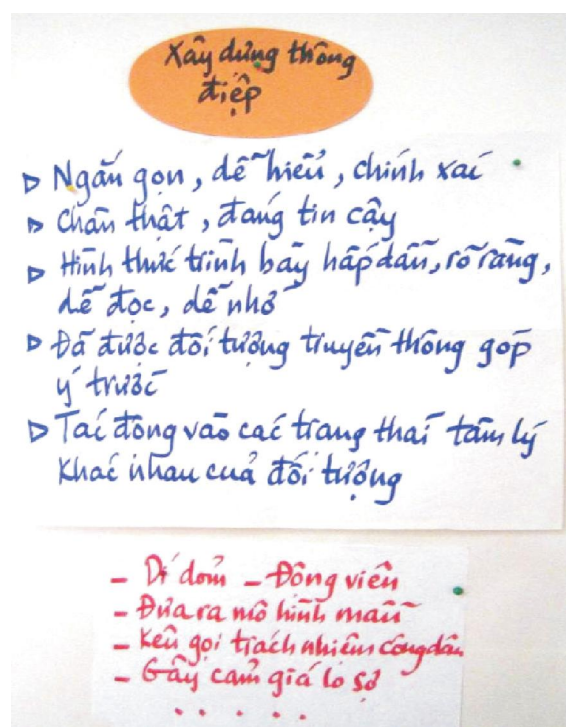 Xây dựng thông
điệp
▷ Ngắn gọn, dễ hiểu, chính xác
▷ Chân thật, đáng tin cậy
▷ Hình thức trình bày hấp dẫn, rõ ràng,
dễ đọc, dễ nhớ
▷ Đã được đối tượng truyền thông góp
ý trước
▷ Tác động vào các trạng thái tâm lý
khác nhau của đối tượng
- Dí dỏm - Động viên
- Đưa ra mô hình mẫu
- Kêu gọi trách nhiệm công dân
- Gây cảm giá lo sợ
. . . . .